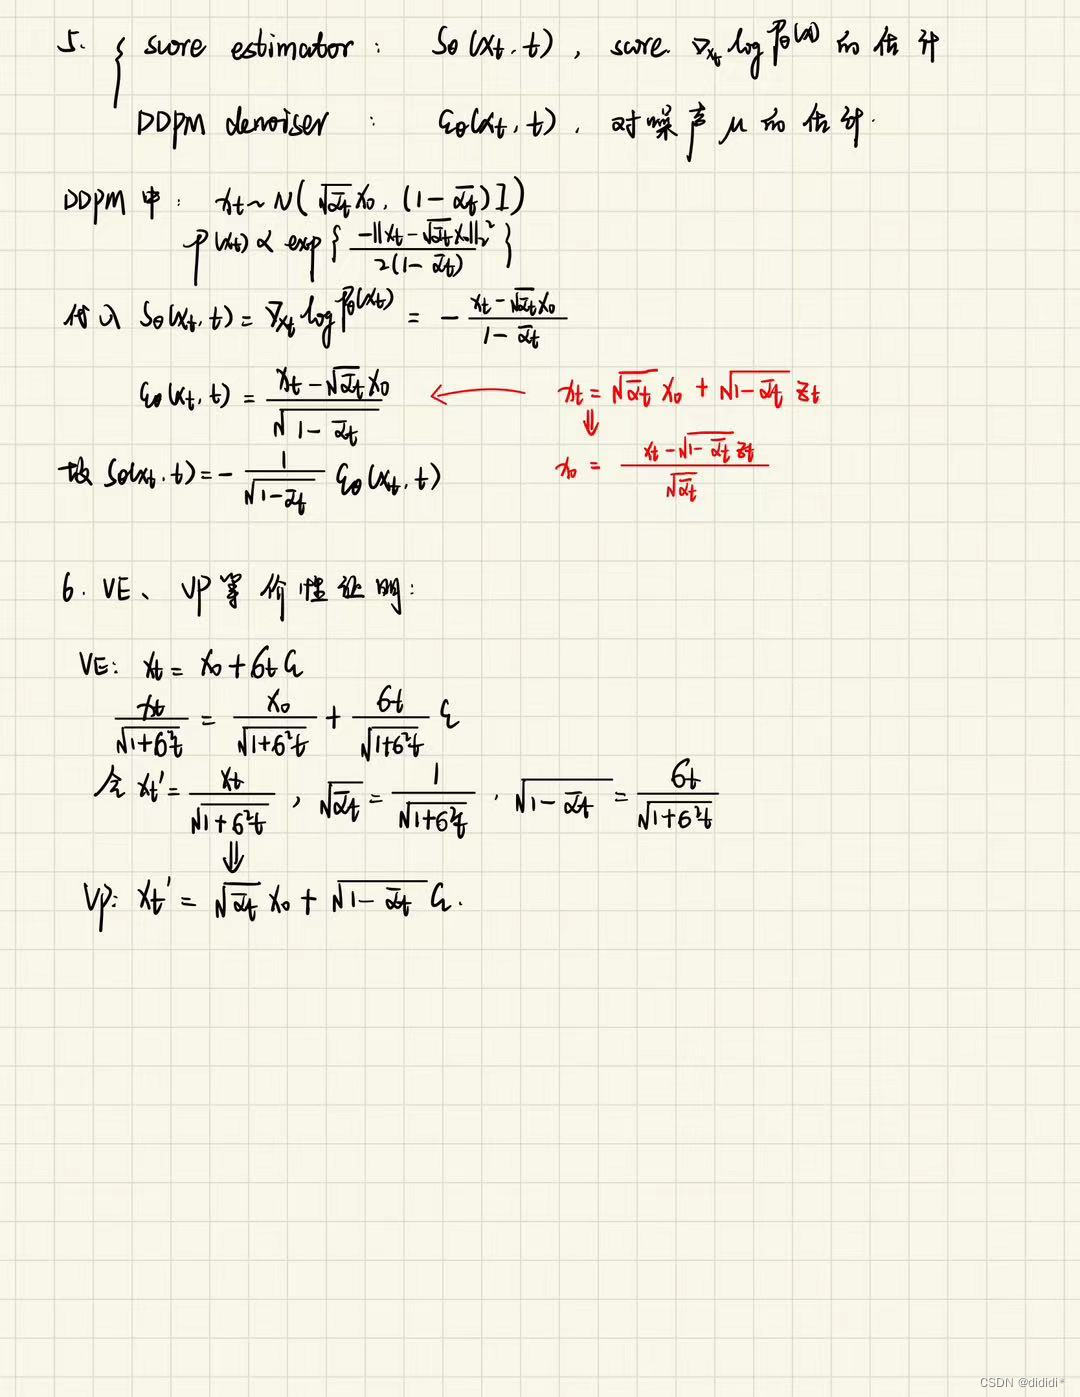 5. { score estimator : Sθ(xt, t), score ∇xt log pθ(x) 的估计
DDPM denoiser : εθ(xt, t), 对噪声 μ 的估计.
DDPM 中: xt ~ N(√ᾱt x0, (1-ᾱt)I)
p(xt) ∝ exp{ -||xt - √ᾱt x0||₂² / 2(1-ᾱt) }
代入 Sθ(xt, t) = ∇xt log pθ(xt) = - (xt - √ᾱt x0) / (1-ᾱt)
εθ(xt, t) = (xt - √ᾱt x0) / √(1-ᾱt) ← xt = √ᾱt x0 + √(1-ᾱt) zt
⇓
x0 = (xt - √(1-ᾱt) zt) / √ᾱt
故 Sθ(xt, t) = - 1/√(1-ᾱt) εθ(xt, t)
6. VE、VP等价性证明:
VE: xt = x0 + σt ε
xt/√(1+σ²t) = x0/√(1+σ²t) + σt/√(1+σ²t) ε
令 xt' = xt/√(1+σ²t), √ᾱt = 1/√(1+σ²t), √(1-ᾱt) = σt/√(1+σ²t)
⇓
VP: xt' = √ᾱt x0 + √(1-ᾱt) ε.
CSDN @dididi*